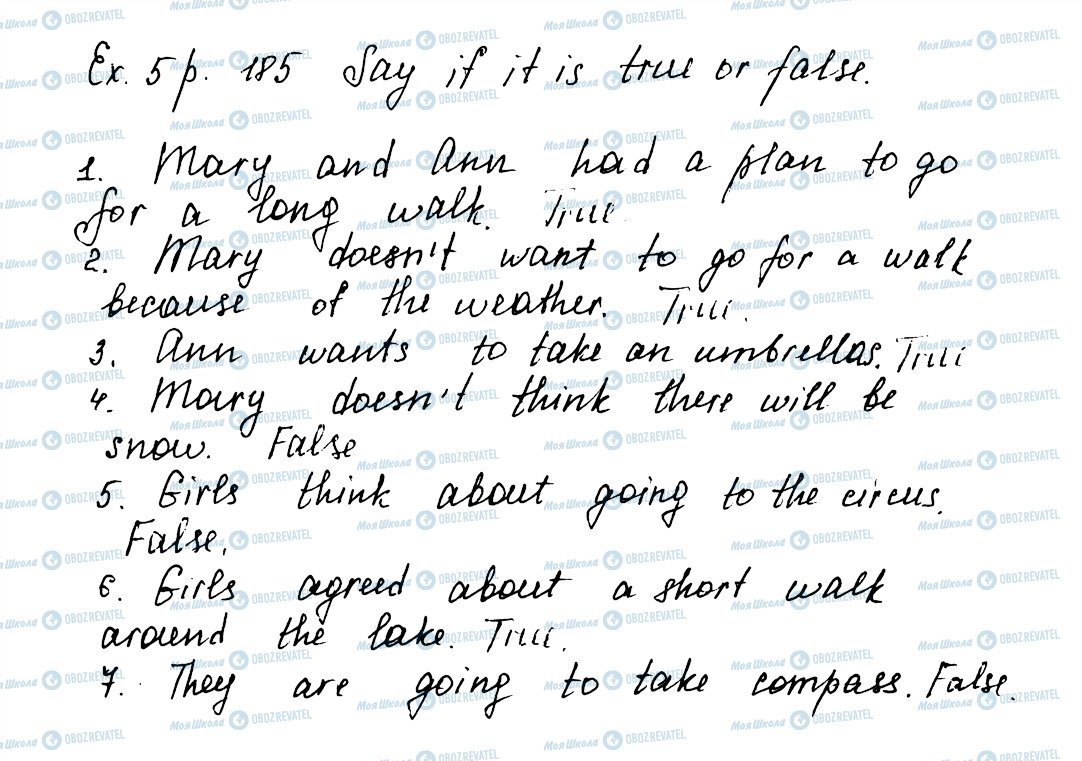 Ex. 5 p. 185 Say if it is true or false.
1. Mary and Ann had a plan to go
for a long walk. True
2. Mary doesn't want to go for a walk
because of the weather. True.
3. Ann wants to take an umbrellas. True
4. Mary doesn't think there will be
snow. False
5. Girls think about going to the circus.
False.
6. Girls agreed about a short walk
around the lake. True.
7. They are going to take compass. False.